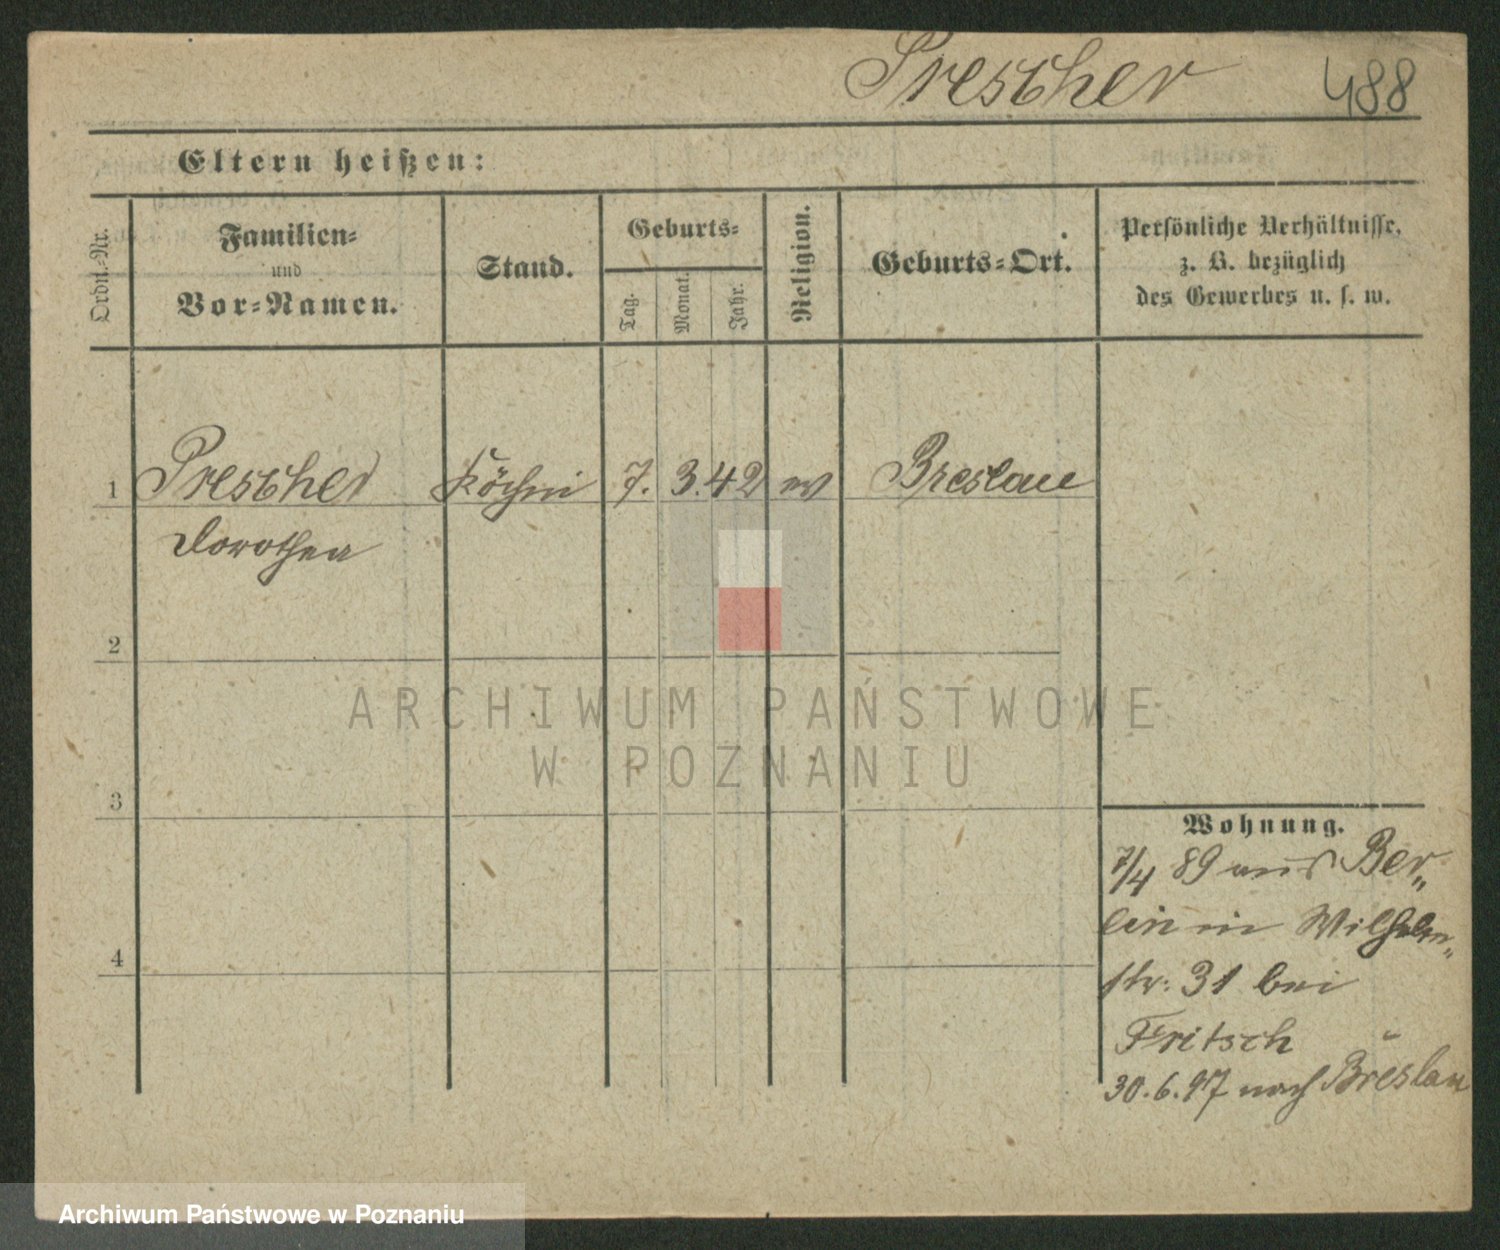 Prescher 488
Eltern heißen:
Ordn.-Nr.
Familien-
und
Vor-Namen.
Stand.
Geburts-
Tag.
Monat.
Jahr.
Religion.
Geburts-Ort.
Persönliche Verhältnisse,
z. B. bezüglich
des Gewerbes u. s. w.
1 Prescher Köchin 7. 3. 42 ev Breslau
Dorothea
2
3
4
Wohnung.
7/4 89 aus Ber„
lin in Wilhelm„
str: 31 bei
Fritsch
30.6.97 nach Breslau
ARCHIWUM PAŃSTWOWE
W POZNANIU
Archiwum Państwowe w Poznaniu